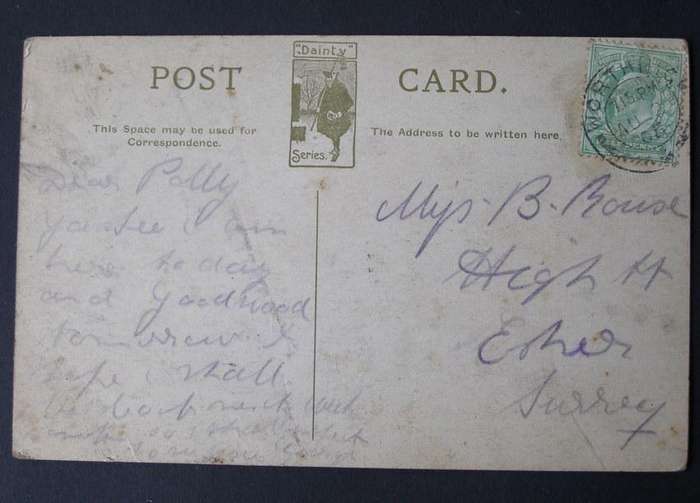 POST CARD.
"Dainty"
Series.
This Space may be used for
Correspondence.
The Address to be written here.
Dear Polly
you see I am
here to day
and Goodwood
tomorrow I
hope I shall
be back next week
Miss B. Rouse
High St
Esher
Surrey